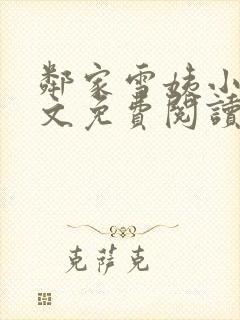 鄰家雪姨小
文免費閱讀
克萍克